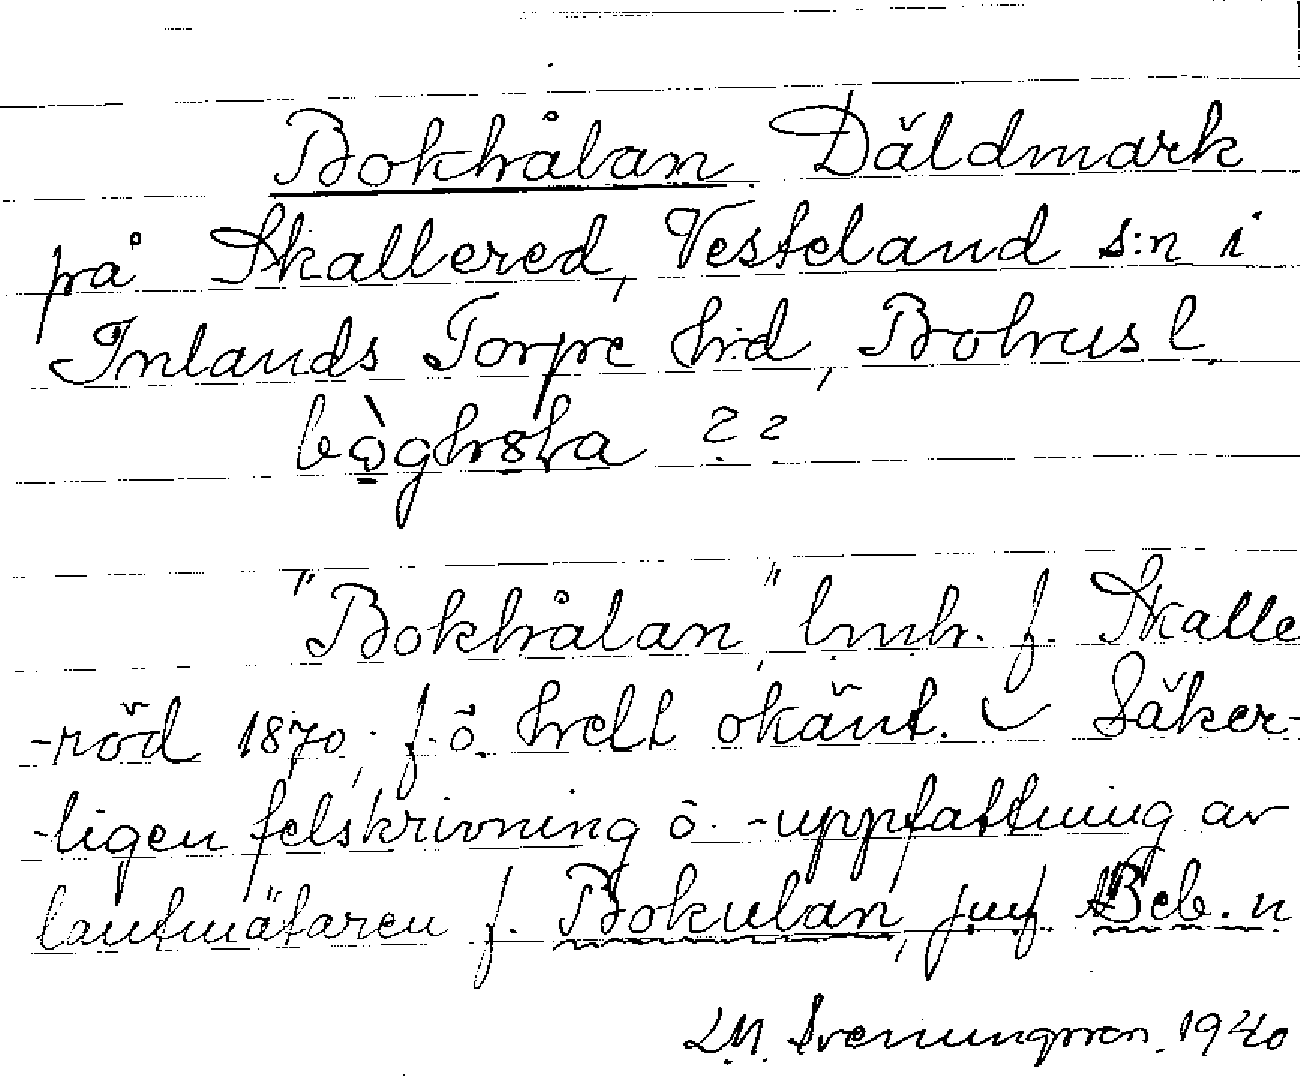 Bokhålan Däldmark
på Skallered, Vesteland s:n i
Inlands Torpe hrd, Bohusl.
??
"Bokhålan", lmh. f. Skalle
-röd 1870; f. ö. helt okänt. Säker-
-ligen felskrivning o. -uppfattning av
lantmätaren f. Bokulan, jmf Beb. n
LM. Svenungsson. 1940